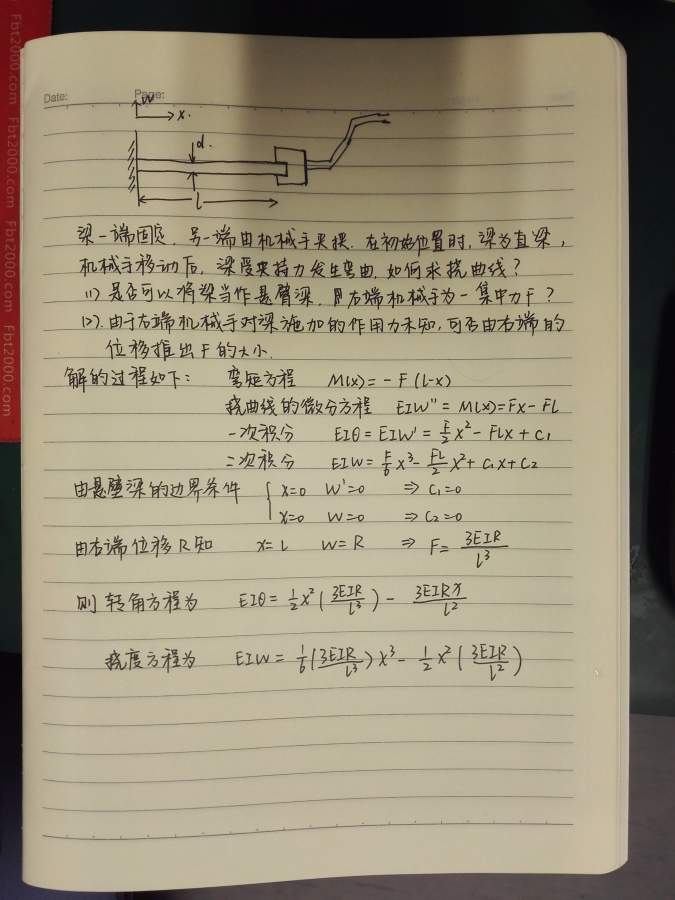 Fbt2000.com Fbt2000.com Fbt2000.com Fbt2000.com
Date:
Page:
W
x.
d.
l
梁一端固定，另一端由机械手夹摸．在初始位置时，梁为直梁，
机械手移动后，梁受夹持力发生弯曲．如何求挠曲线？
(1) 是否可以将梁当作悬臂梁．用右端机械手为一集中力F？
(2)．由于右端机械手对梁施加的作用力未知，可否由右端的
位移推出F的大小．
解的过程如下： 弯矩方程 M(x)= -F(l-x)
挠曲线的微分方程 EIW''= M(x)=Fx-Fl
一次积分 EIθ=EIW'= F/2 x²-Flx+C₁
二次积分 EIW= F/6 x³- Fl/2 x²+C₁x+C₂
由悬臂梁的边界条件 { x=0 W'=0 ⇒ C₁=0
x=0 W=0 ⇒ C₂=0
由右端位移R知 x=l W=R ⇒ F= 3EIR/l³
则 转角方程为 EIθ= 1/2 x²(3EIR/l³) - 3EIRx/l²
挠度方程为 EIW= 1/6 (3EIR/l³) x³ - 1/2 x² (3EIR/l²)